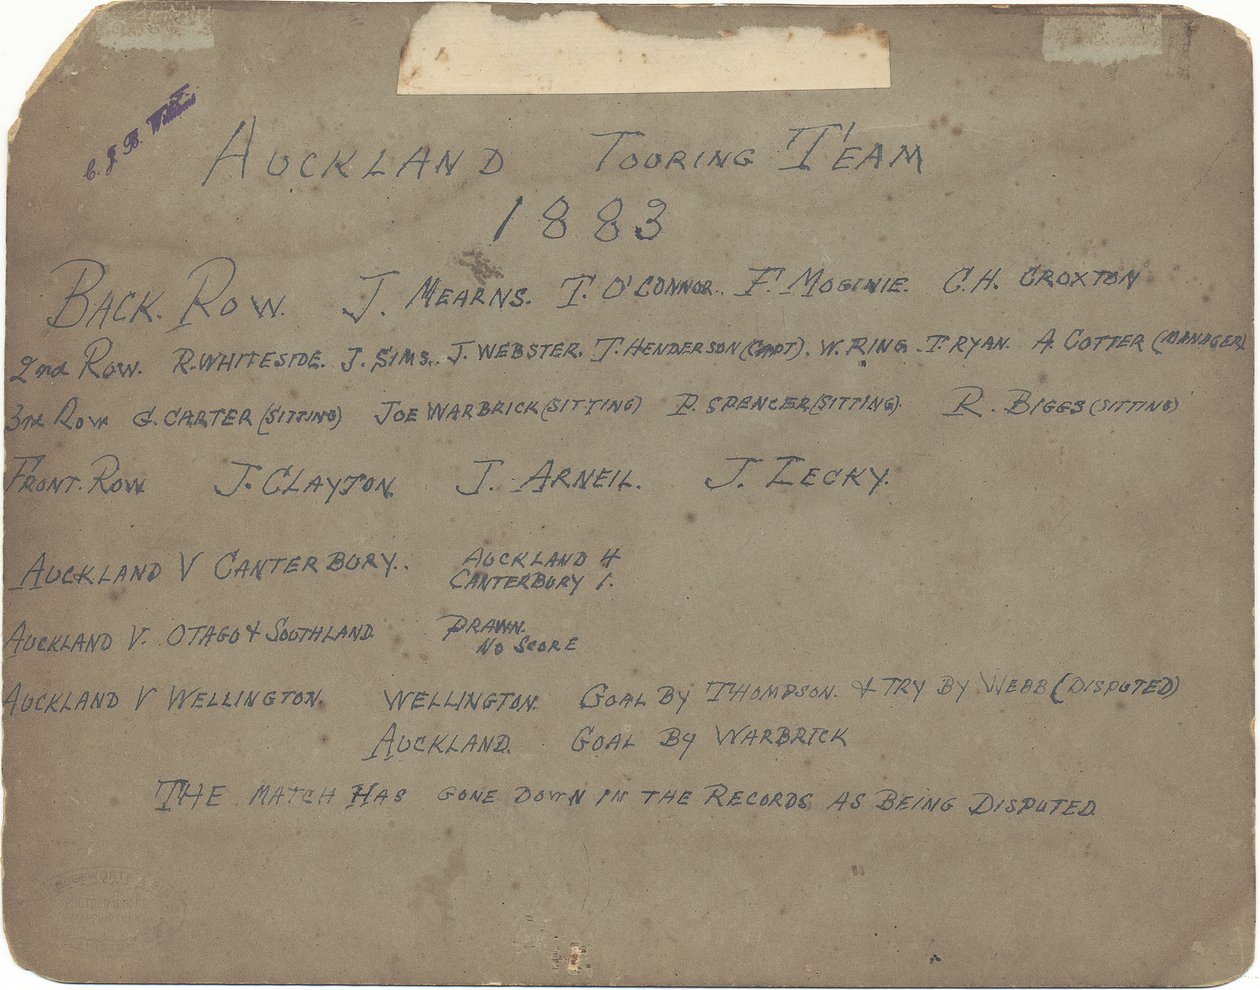 C. J. B. Williams
AUCKLAND TOURING TEAM
1883
BACK. ROW. J. MEARNS. T. O'CONNOR. F. MOGINIE. C.H. CROXTON
2nd Row. R. WHITESIDE. J. SIMS. J. WEBSTER. T. HENDERSON (CAPT). W. RING. T. RYAN. A COTTER (MANAGER)
3rd Row G. CARTER (SITTING) JOE WARBRICK (SITTING) P. SPENCER (SITTING). R. BIGGS (SITTING)
FRONT. ROW J. CLAYTON J. ARNEIL. J. LECKY.
AUCKLAND V CANTERBURY.. AUCKLAND 4
CANTERBURY 1.
AUCKLAND V. OTAGO & SOUTHLAND DRAWN.
NO SCORE
AUCKLAND V WELLINGTON. WELLINGTON. GOAL BY THOMPSON. & TRY BY WEBB (DISPUTED)
AUCKLAND. GOAL BY WARBRICK
THE MATCH HAS GONE DOWN IN THE RECORDS AS BEING DISPUTED.